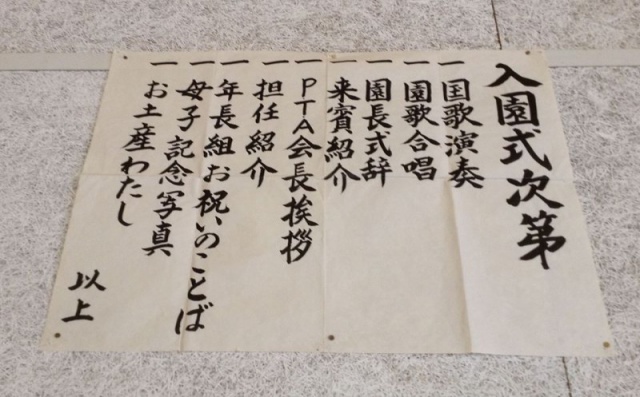 入園式次第
一 国歌演奏
一 園歌合唱
一 園長式辞
一 来賓紹介
一 PTA会長挨拶
一 担任紹介
一 年長組お祝いのことば
一 母子記念写真
一 お土産わたし
以上